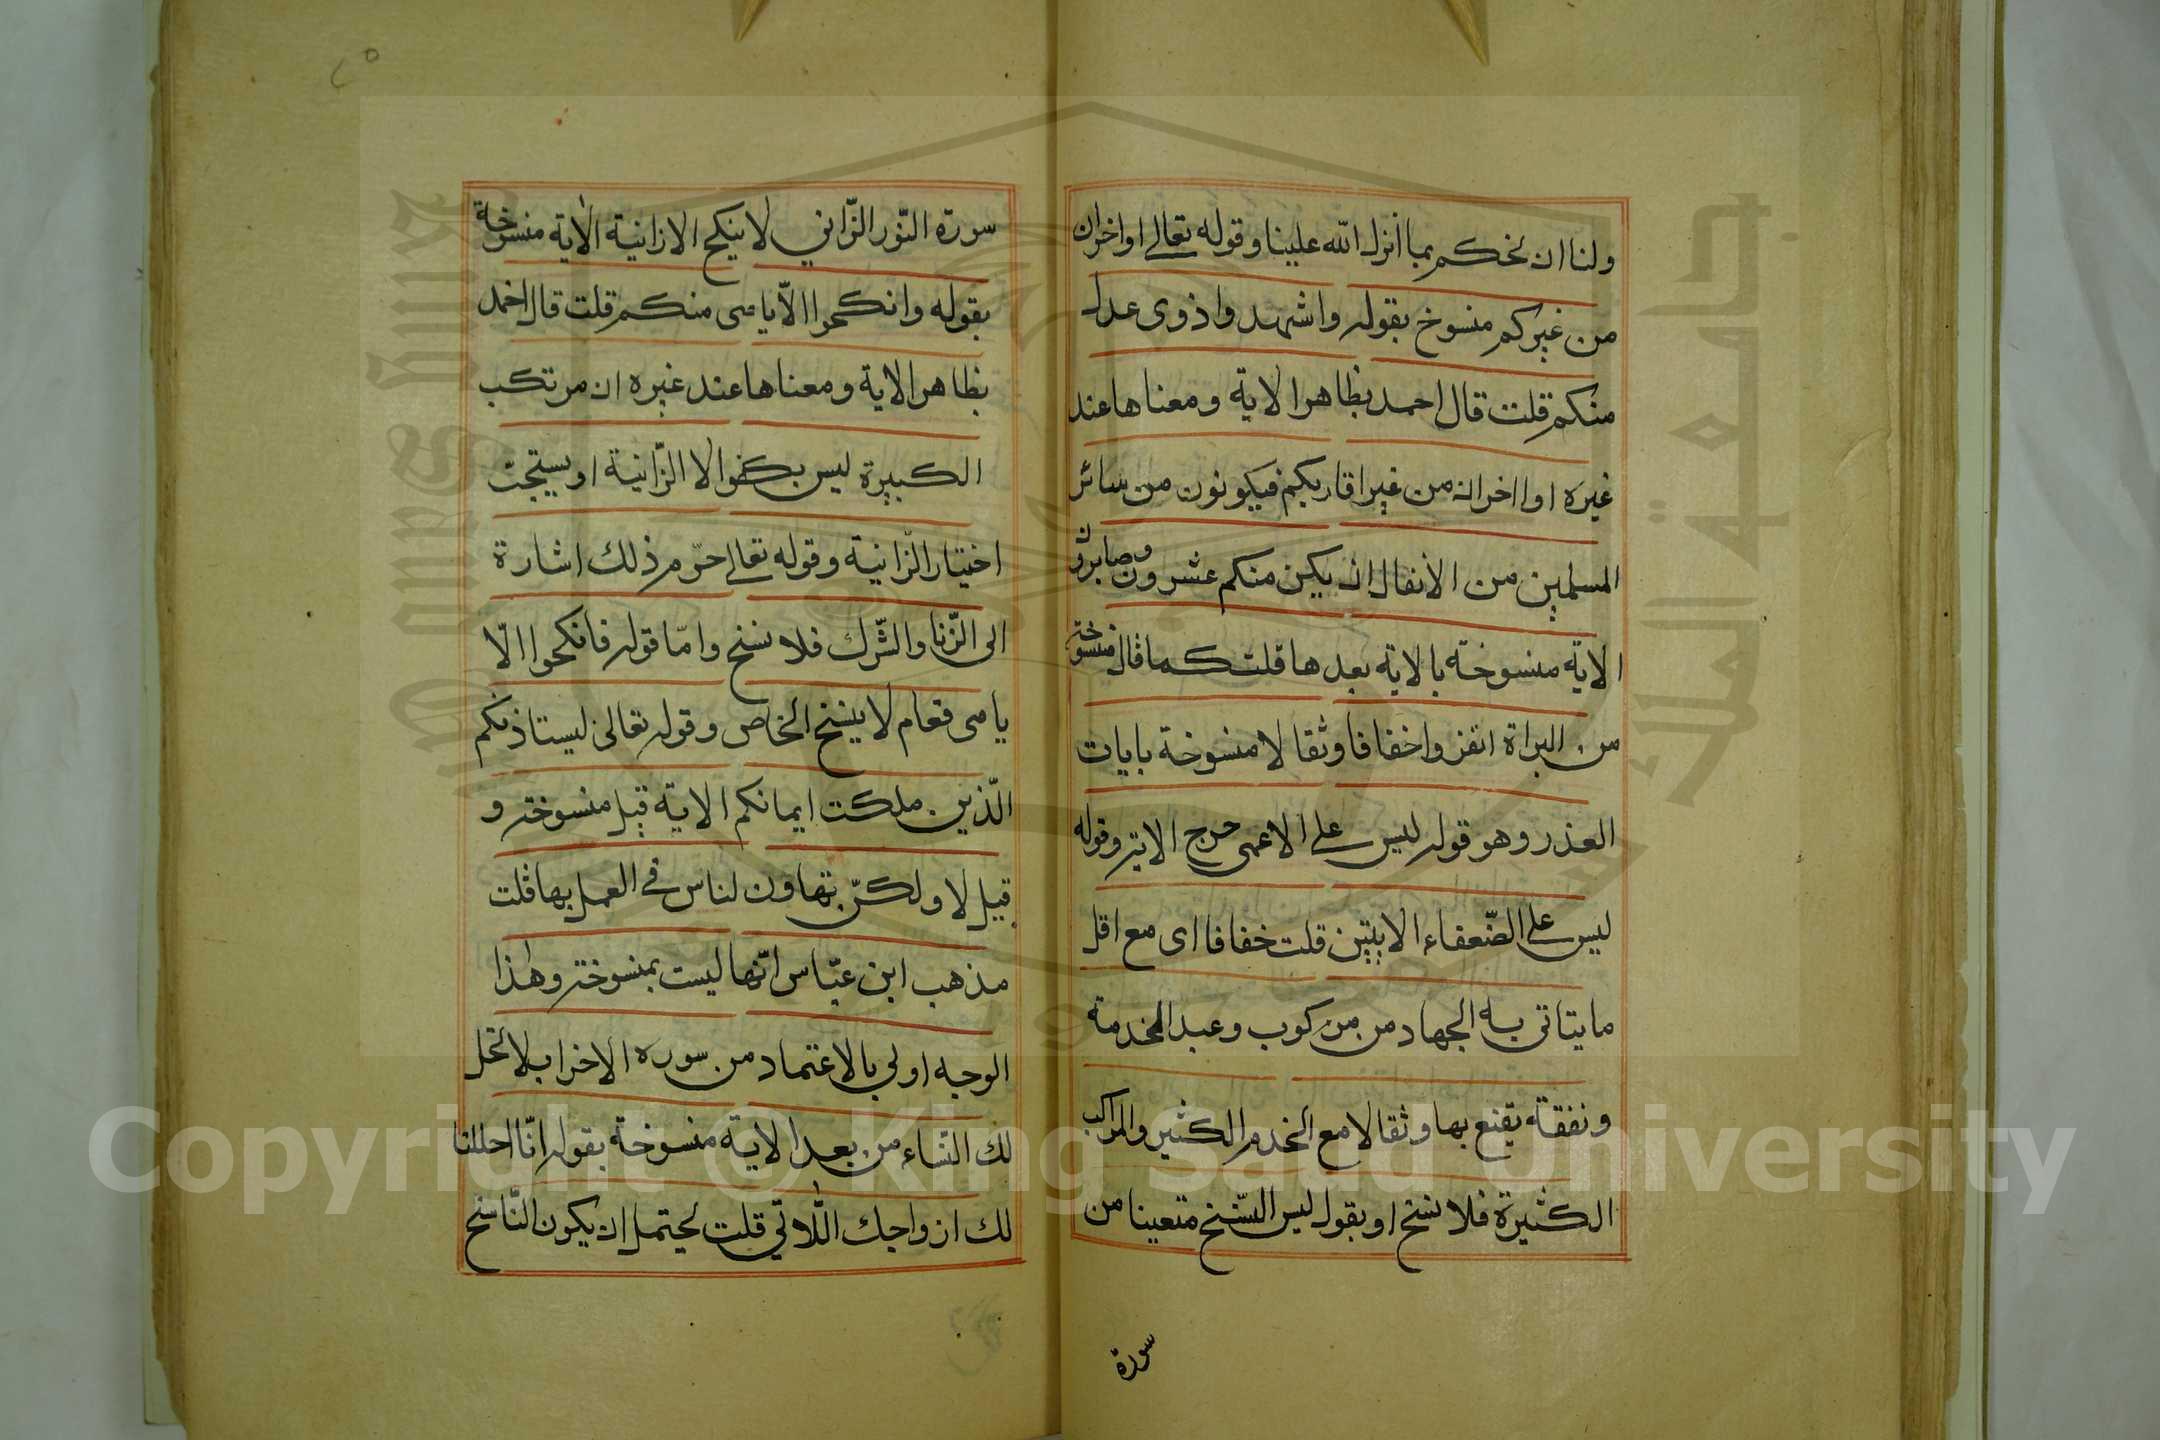 ولنا ان نحكم بما انزل الله علينا وقوله تعالى او اخران
من غيركم منسوخ بقوله واشهدوا ذوى عدل
منكم قلت قال احمد بظاهر الاية ومعناها عند
غيره او اخران من غير اقاربكم فيكونون من سائر
المسلمين من الانفال ان يكن منكم عشرون صابرون
الاية منسوخة بالاية بعدها قلت كما قال منسوخة
من البراة انفروا خفافا وثقالا منسوخة بايات
العذر وهو قوله ليس على الاعمى حرج الاية وقوله
ليس على الضّعفاء الايتين قلت خفافا اى مع اقل
ما يتاتى به الجهاد من مركوب وعبد للخدمة
ونفقة يقنع بها وثقالا مع الخدم الكثير والمراكب
الكثيرة فلا نسخ او بقول ليس النّسخ متعينا من
سورة
سورة النّور الزّاني لا ينكح الا زانية الاية منسوخة
بقوله وانكحوا الايامى منكم قلت قال احمد
بظاهر الاية ومعناها عند غيره ان مرتكب
الكبيرة ليس بكفو الا الزّانية او يستحبّ
اختيار الزّانية وقوله تعالى حرّم ذلك اشارة
الى الزّنا والشّرك فلا نسخ وامّا قوله فانكحوا الا
يامى فعام لا ينسخ الخاص وقوله تعالى ليستاذنكم
الّذين ملكت ايمانكم الاية قيل منسوخة و
قيل لا ولكن تهاون لناس فى العمل بها قلت
مذهب ابن عبّاس انّها ليست بمنسوخة وهذا
الوجه اولى بالاعتماد من سوره الاخراب لا تحل
لك النّساء من بعد الاية منسوخة بقوله انّا احللنا
لك ازواجك اللاتي قلت يحتمل ان يكون النّاسخ
Copyright © King Saud University